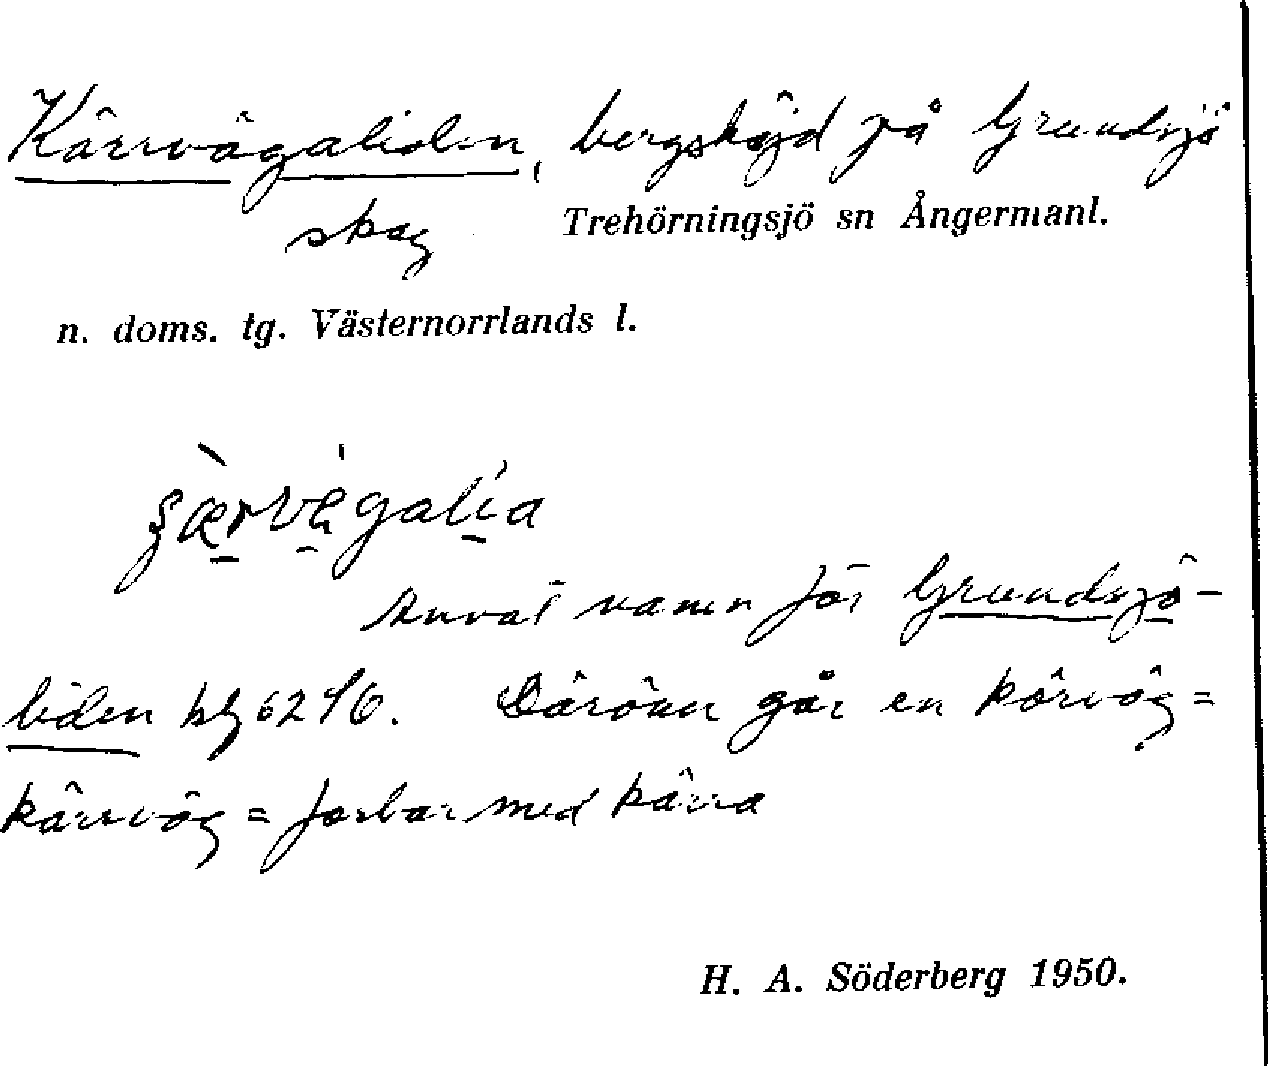 Kärrvägaliden, bergshöjd på Grundsjö
skog Trehörningsjö sn Ångermanl.
n. doms. tg. Västernorrlands l.
namn för Grundsjö-
liden blz 6276. Däröver går en körväg=
kärrväg = farbar med kärra
H. A. Söderberg 1950.